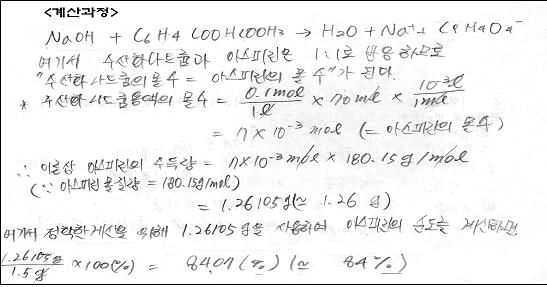 <계산과정>
NaOH + C6H4COOHCOOH3 → H2O + Na⁺ + C9H7O4⁻
여기서 수산화나트륨과 아스피린은 1:1로 반응하므로
"수산화나트륨의 몰수 = 아스피린의 몰수"가 된다.
* 수산화나트륨용액의 몰수 = 0.1mol/1ℓ × 70mℓ × 10⁻³ℓ/1mℓ
= 7×10⁻³ mol (= 아스피린의 몰수)
∴ 이론상 아스피린의 수득량 = 7×10⁻³mol × 180.15g/mol
(∵ 아스피린 몰질량 = 180.15g/mol)
= 1.26105g (≃ 1.26 g)
여기서 정확한 계산을 위해 1.26105g을 사용하여 아스피린의 순도를 계산하면
1.26105g/1.5g ×100(%) = 84.07(%) (≃ 84%)